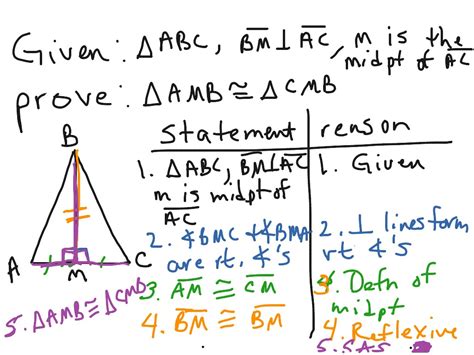 Given: △ABC, BM ⊥ AC, m is the
midpt of AC
prove: △AMB ≅ △CMB
statement | reason
1. △ABC, BM⊥AC
m is midpt of
AC
1. Given
2. ∡BMC + ∡BMA
are rt. ∡'s
2. ⊥ lines form
rt ∡'s
3. AM ≅ CM
3. Defn of
midpt
4. BM ≅ BM
4. Reflexive
5. △AMB ≅ △CMB
5. SAS
B
A
M
C